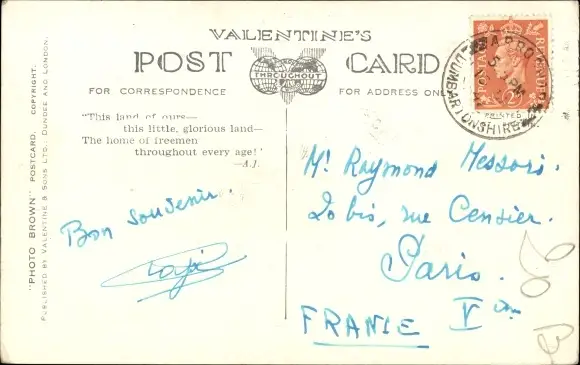 VALENTINE'S
POST CARD
THROUGHOUT
FOR CORRESPONDENCE
FOR ADDRESS ONLY
"This land of ours—
this little, glorious land—
The home of freemen
throughout every age!"
—A.J.
"PHOTO BROWN" POSTCARD. COPYRIGHT.
PUBLISHED BY VALENTINE & SONS LTD. DUNDEE AND LONDON.
Bon Souvenir.
POSTAGE
REVENUE
2D
PRINTED
5 PM
DUMBARTONSHIRE
Mr. Raymond Messori.
20 bis, rue Censier.
Paris.
FRANCE Vem